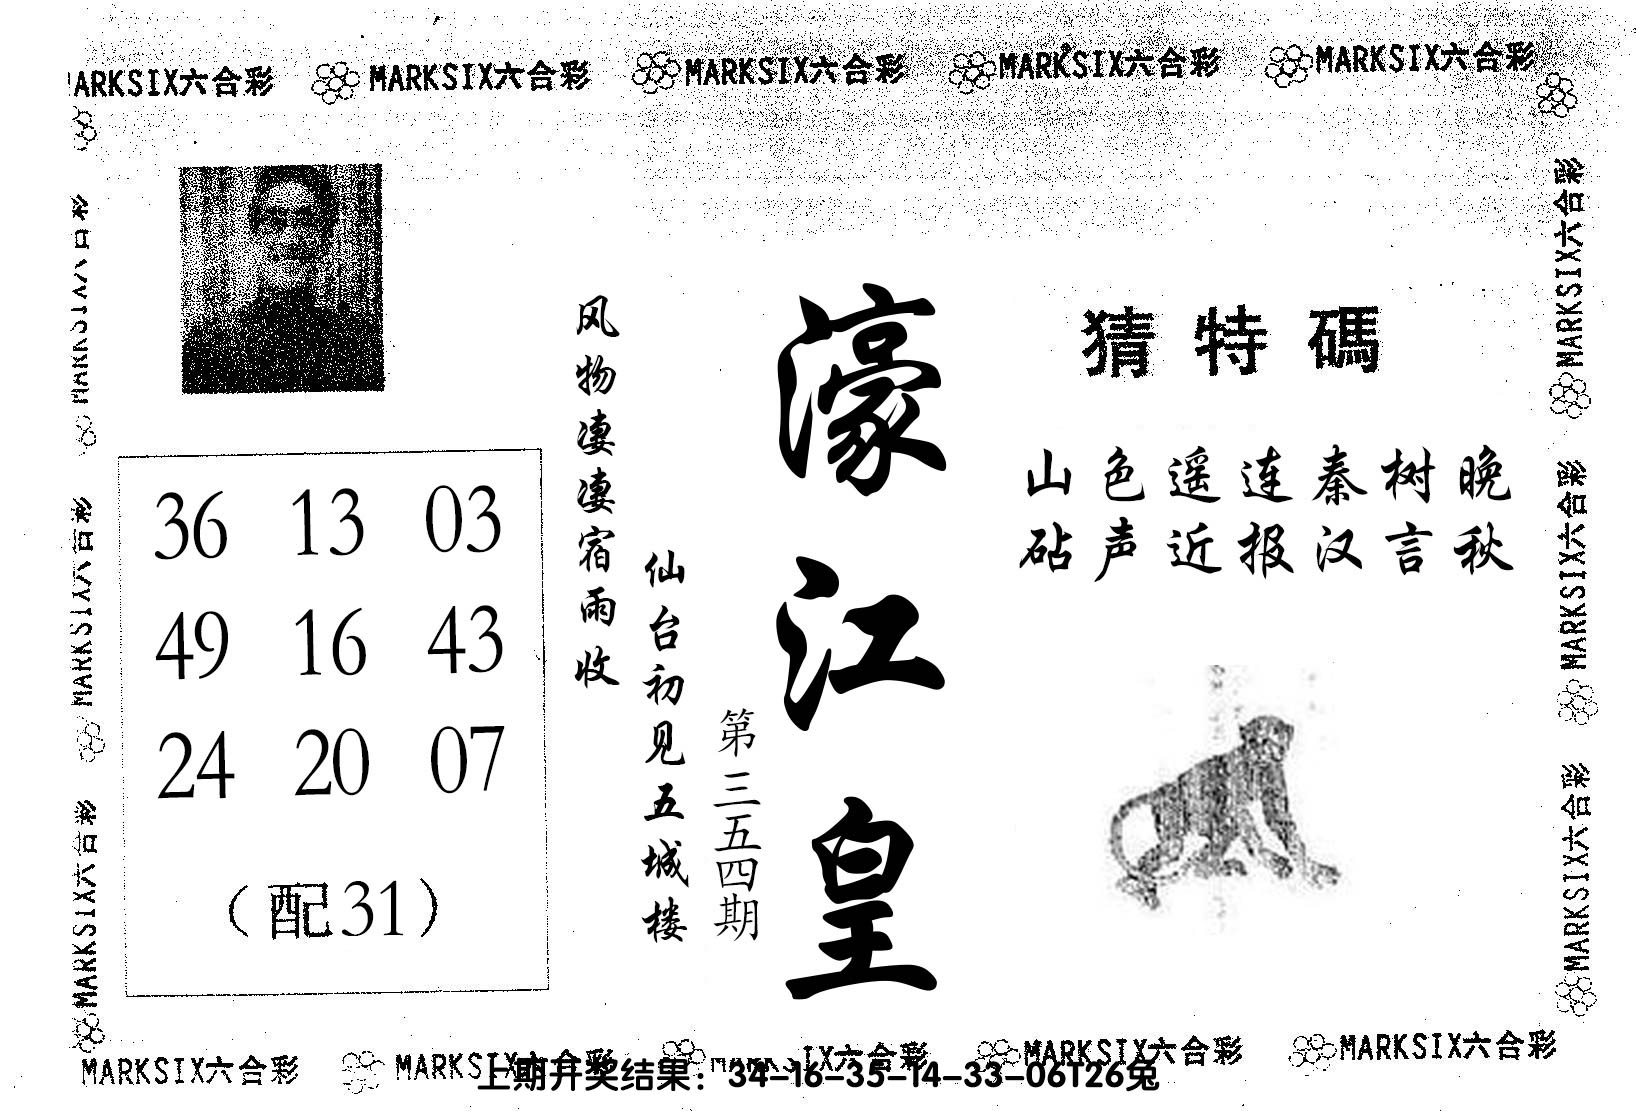 MARKSIX六合彩 MARKSIX六合彩 MARKSIX六合彩 MARKSIX六合彩 MARKSIX六合彩
MARKSIX六合彩
MARKSIX六合彩
MARKSIX六合彩
MARKSIX六合彩
MARKSIX六合彩
MARKSIX六合彩
36 13 03
49 16 43
24 20 07
（配31）
风物凄凄宿雨收
仙台初见五城楼
第三五四期
濠江皇
猜特碼
山色遥连秦树晚
砧声近报汉言秋
MARKSIX六合彩 MARKSIX六合彩 IX六合彩 MARKSIX六合彩 MARKSIX六合彩
上期开奖结果：34-16-35-14-33-06T26兔